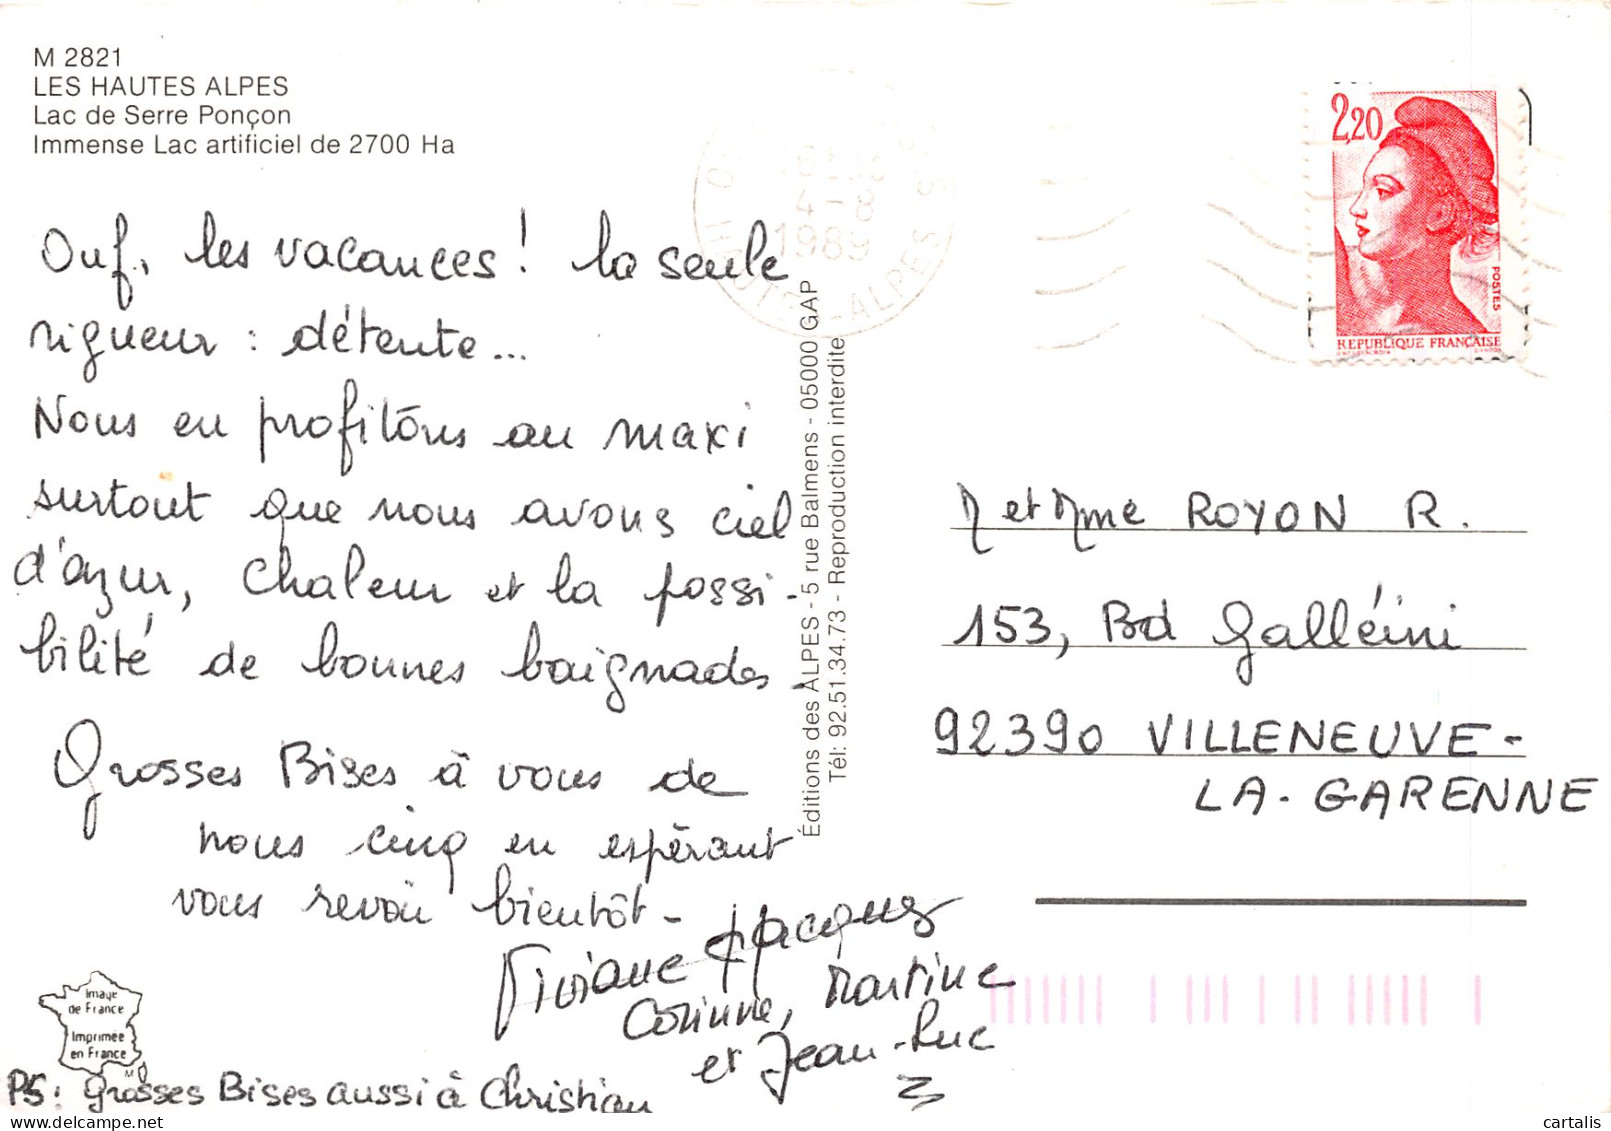 M 2821
LES HAUTES ALPES
Lac de Serre Ponçon
Immense Lac artificiel de 2700 Ha
Ouf, les vacances ! la seule
rigueur : détente...
Nous en profitons au maxi
surtout que nous avons ciel
d'azur, chaleur et la possi-
bilité de bonnes baignades -
Grosses Bises à vous de
nous cinq en espérant
vous revoir bientôt -
Viviane Jacques
Corinne, Martine
et Jean-Luc
PS : Grosses Bises aussi à Christian
Image
de France
Imprimée
en France
M
Éditions des ALPES - 5 rue Balmens - 05000 GAP
Tél: 92.51.34.73 - Reproduction interdite
4-8
1989
HAUTES-ALPES
2,20
POSTES
REPUBLIQUE FRANÇAISE
M et Mme ROYON R.
153, Bd Galléini
92390 VILLENEUVE-
LA-GARENNE
cartalis